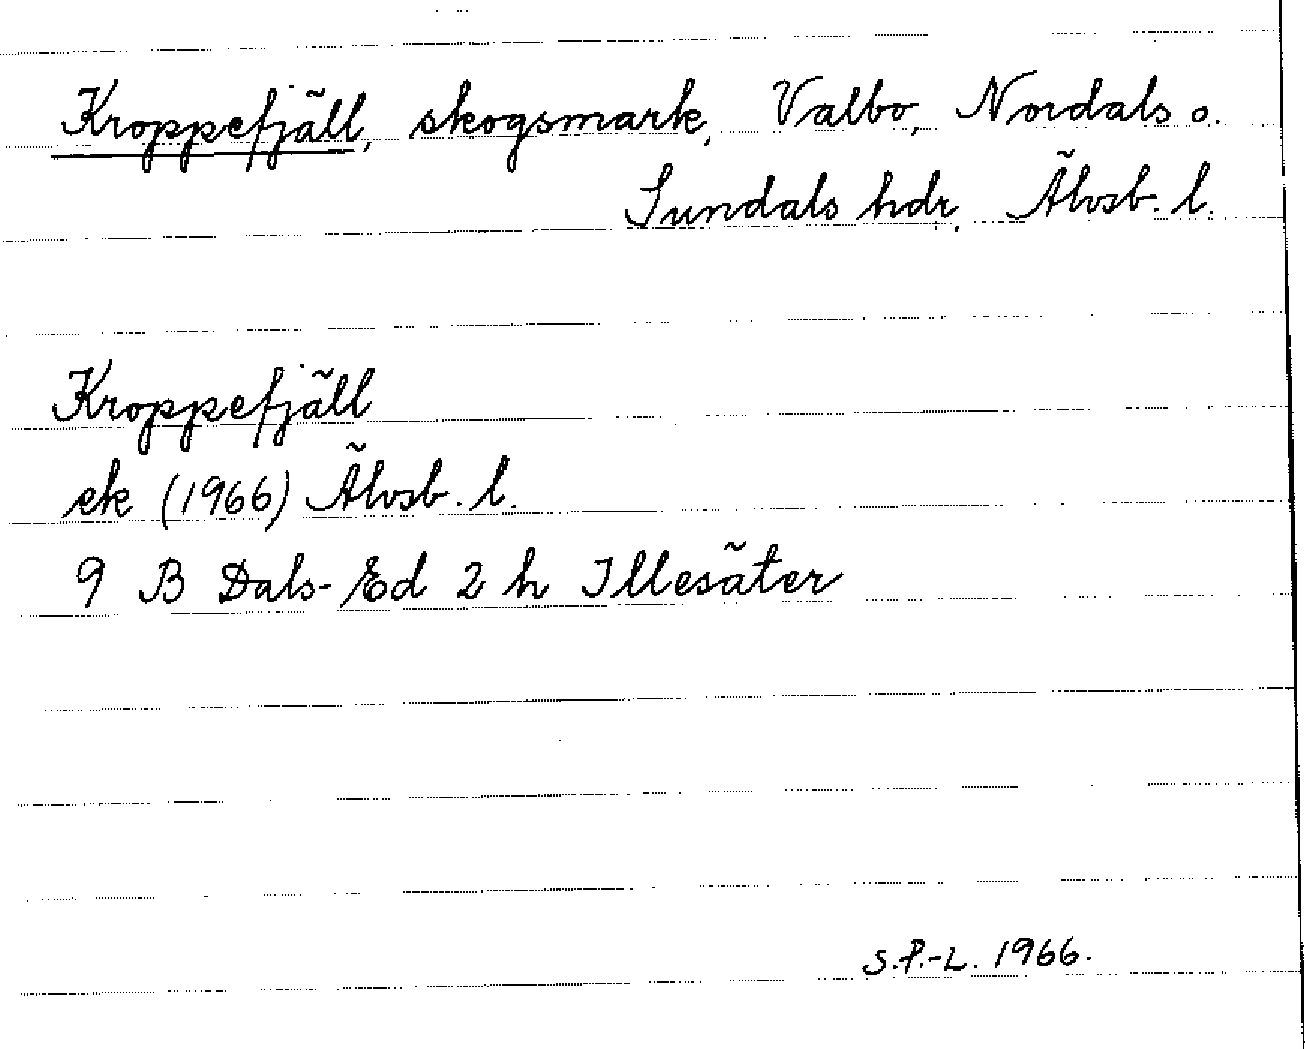 Kroppefjäll, skogsmark, Valbo, Nordals o.
Sundals hdr, Älvsb. l.
Kroppefjäll
ek (1966) Älvsb. l.
9 B Dals-Ed 2 h Illesäter
S.P.-L. 1966.